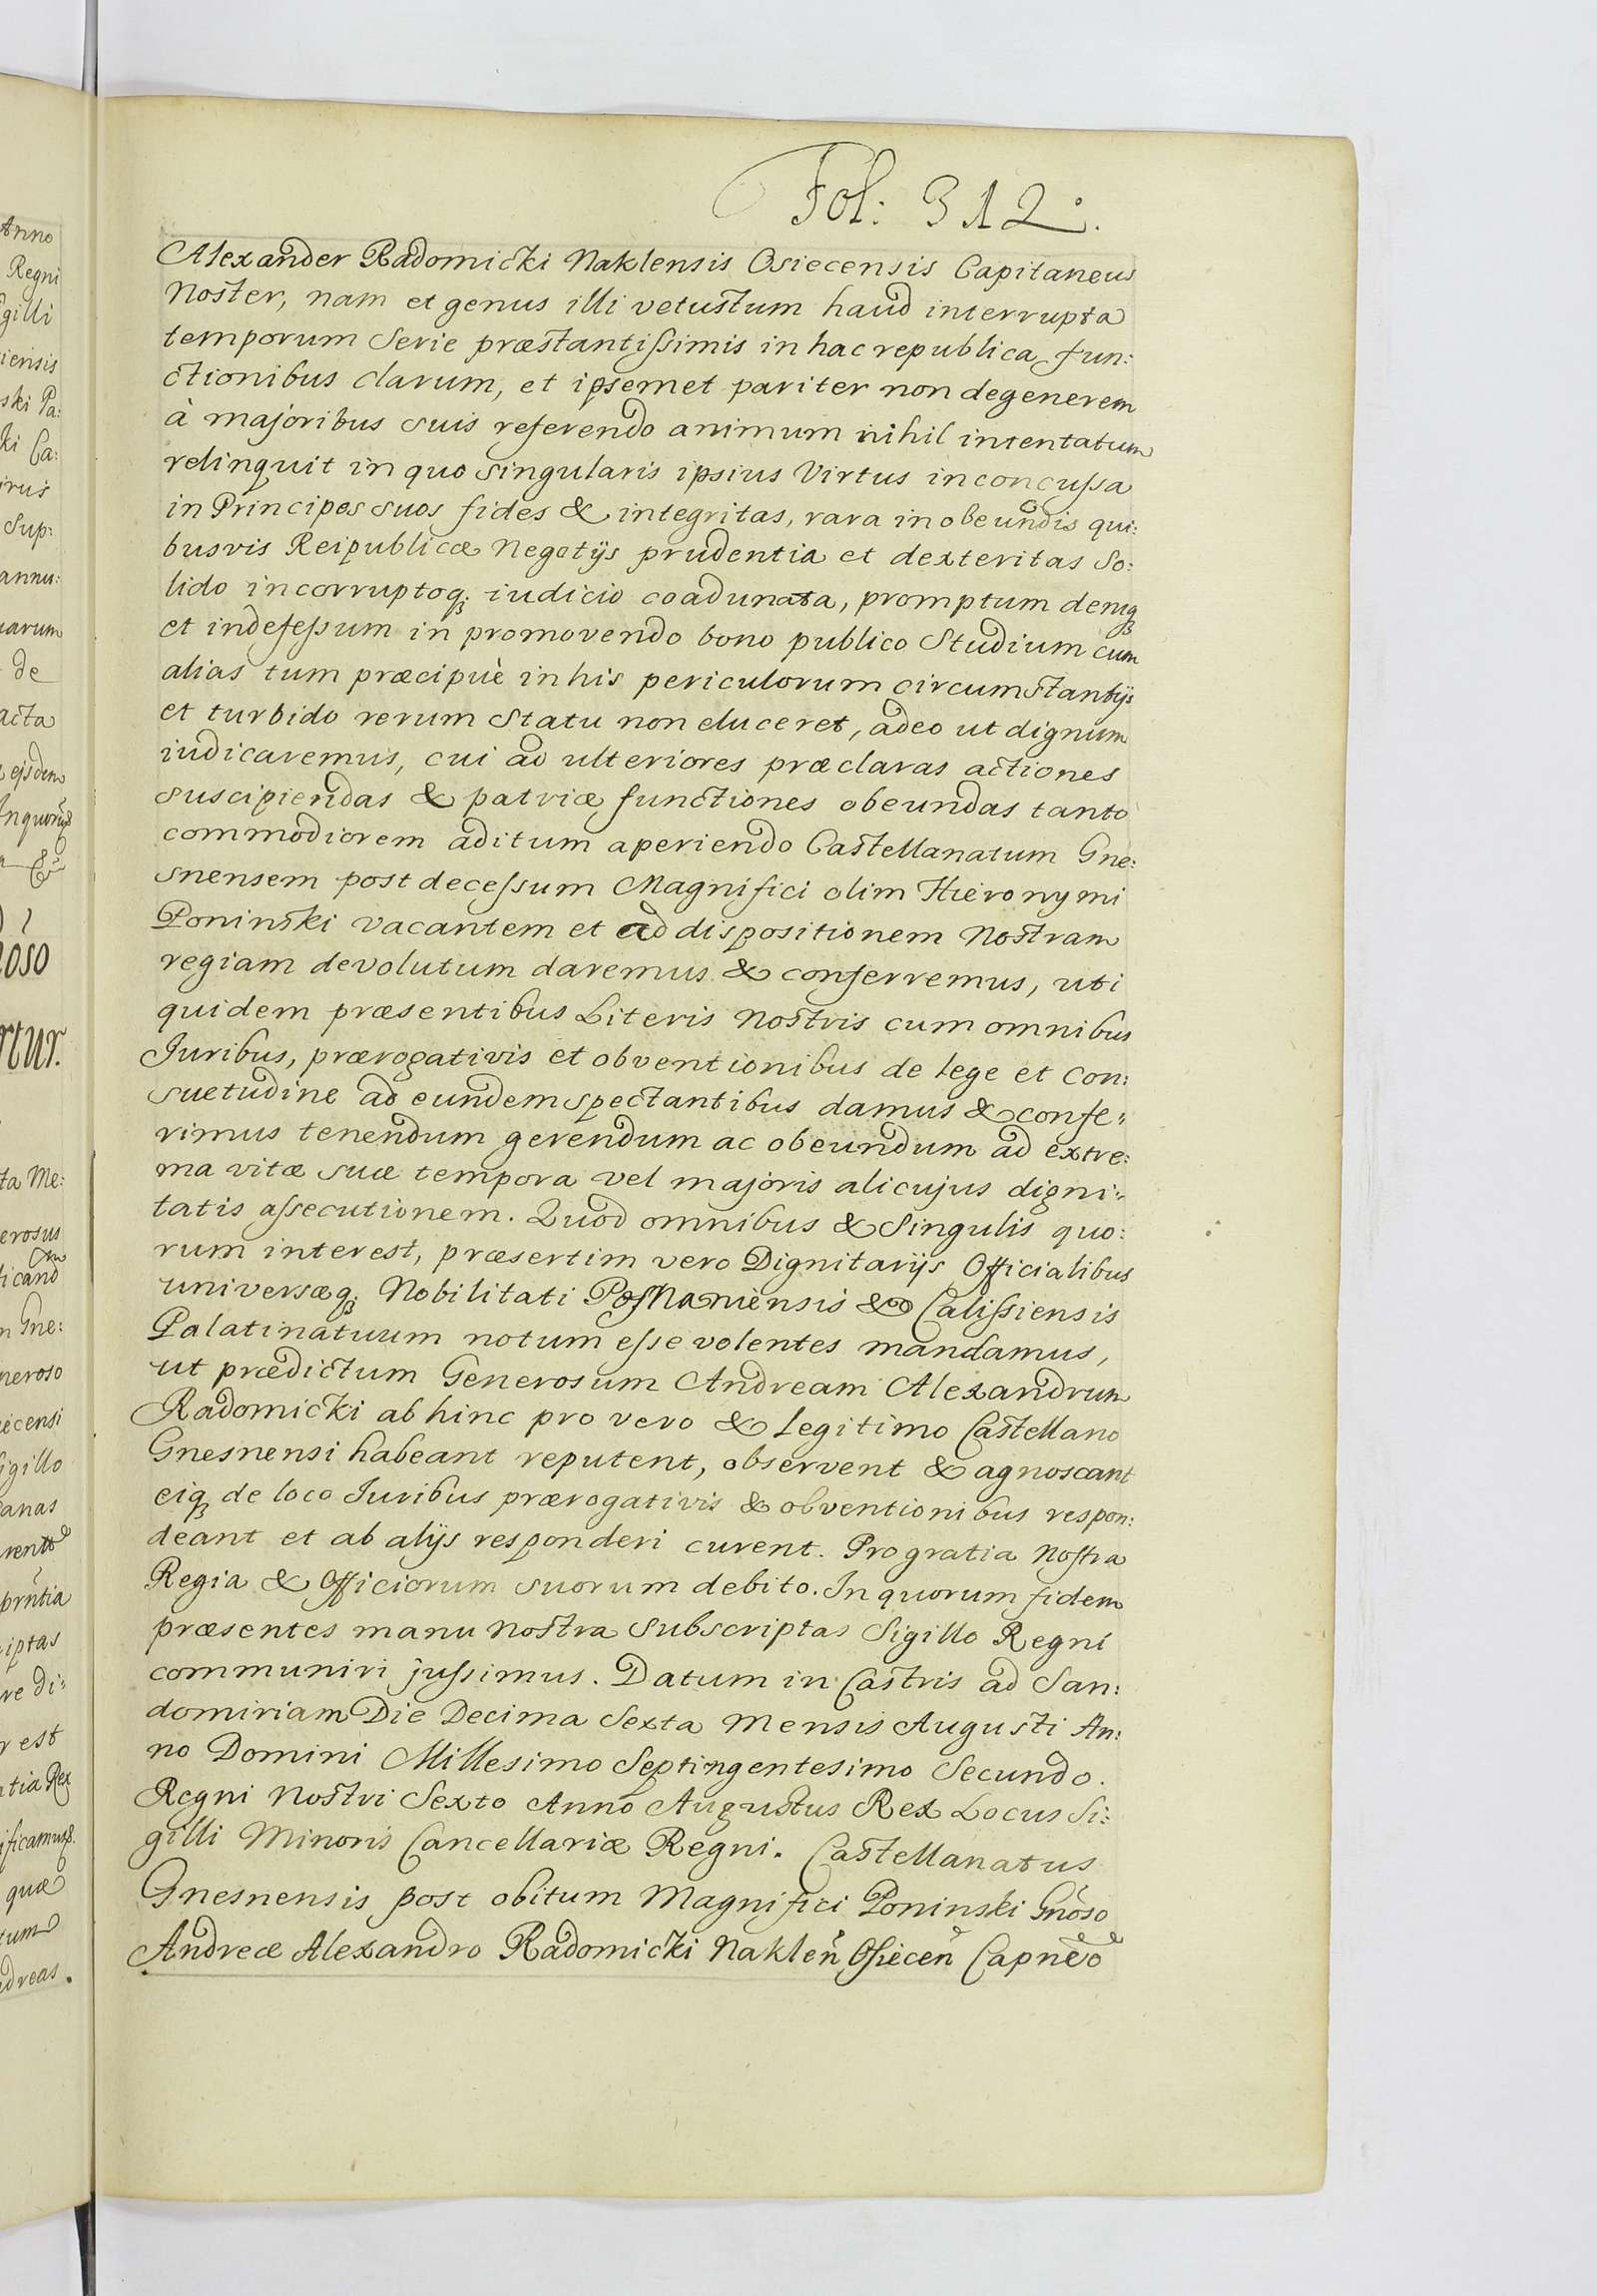 Fol: 312.
Alexander Radomicki Naklensis Osiecensis Capitaneus
Noster, nam et genus illi vetustum haud interrupta
temporum Serie præstantißimis in hac republica fun:
ctionibus clarum, et ipsemet pariter non degenerem
à majoribus suis referendo animum nihil intentatum
relinquit in quo singularis ipsius Virtus inconcußa
in Principes suos fides & integritas, rara in obeundis qui:
busvis Reipublicæ Negotijs prudentia et dexteritas So:
lido incorruptoq; iudicio coadunata, promptum deniq;
et indefeßum in promovendo bono publico Studium cum
alias tum præcipuè in his periculorum circumstantijs
et turbido rerum Statu non eluceret, adeo ut dignum
iudicaremus, cui ad ulteriores præclaras actiones
suscipiendas & patriæ functiones obeundas tanto
commodiorem aditum aperiendo Castellanatum Gne:
snensem post deceßum Magnifici olim Hieronymi
Poninski vacantem et ad dispositionem Nostram
regiam devolutum daremus & conferremus, uti
quidem præsentibus Literis Nostris cum omnibus
Juribus, prærogativis et obventionibus de lege et Con:
suetudine ad eundem spectantibus damus & confe:
rimus tenendum gerendum ac obeundum ad extre:
ma vitæ suæ tempora vel majoris alicujus digni:
tatis aßecutionem. Quod omnibus & Singulis quo:
rum interest, præsertim vero Dignitarijs Officialibus
universæq; Nobilitati Posnaniensis & Calißiensis
Palatinatuum notum eße volentes mandamus,
ut prædictum Generosum Andream Alexandrum
Radomicki ab hinc pro vero & legitimo Castellano
Gnesnensi habeant reputent, observent & agnoscant
eiq; de loco Juribus prærogativis & obventionibus respon:
deant et ab alijs responderi curent. Pro gratia Nostra
Regia & Officiorum suorum debito. In quorum fidem
præsentes manu Nostra Subscriptas Sigillo Regni
communiri jußimus. Datum in Castris ad San:
domiriam Die Decima Sexta Mensis Augusti An:
no Domini Millesimo Septingentesimo Secundo.
Regni Nostri Sexto Anno Augustus Rex Locus Si:
gilli Minoris Cancellariæ Regni. Castellanatus
Gnesnensis post obitum Magnifici Poninski Gnoso
Andreæ Alexandro Radomicki Naklen Osiecen Capneo